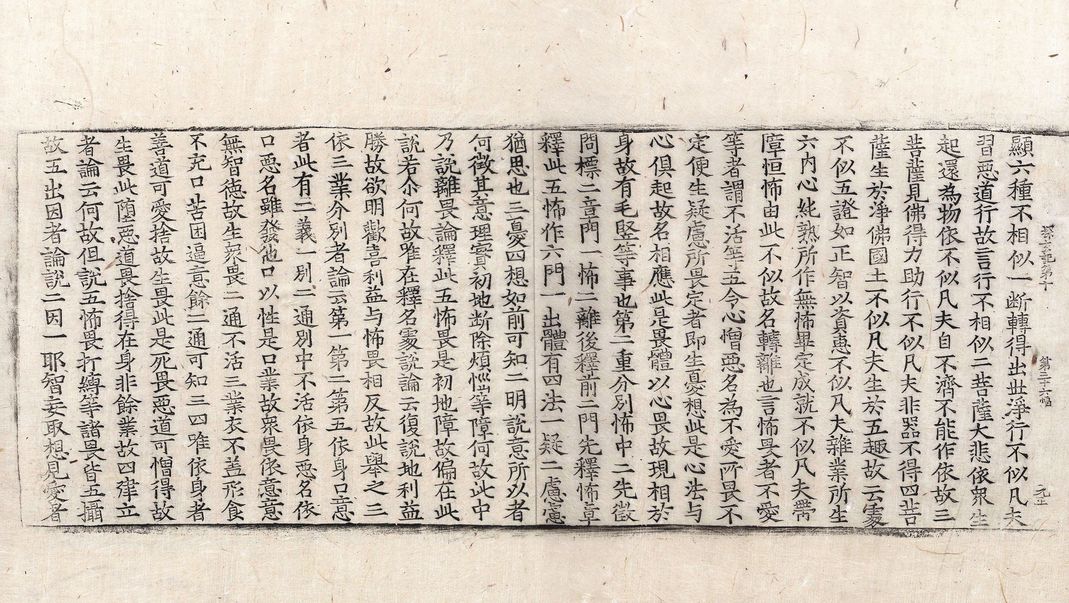 顯六種不相似一断轉得出世淨行不似凡夫
習惡道行故言行不相似二菩薩大悲依衆生
探玄記第十 第三十六幅
起還為物依不似凡夫自不濟不能作依故三
菩薩見佛得力助行不似凡夫非器不得四菩
薩生於淨佛國土不似凡夫生於五趣故云處
不似五證如正智以資惠不似凡夫雜業所生
六内心純熟所作無怖畢定成就不似凡夫帶
障恒怖由此不似故名轉離也言怖畏者不愛
等者謂不活等五令心憎惡名為不愛所畏不
定便生疑慮所畏定者即生憂想此是心法與
心俱起故名相應此是畏體以心畏故現相於
身故有毛竪等事也第二重分別怖中二先徵
問標二章門一怖二離後釋前二門先釋怖章
釋此五怖作六門一出體有四法一疑二慮慮
猶思也三憂四想如前可知二明說意所以者
何徵其意理實初地断除煩惱等障何故此中
乃說離畏論釋此五怖畏是初地障故偏在此
說若尒何故唯在釋名處說論云復說地利益
勝故欲明歡喜利益与怖畏相反故此舉之三
依三業分別者論云第一第二第五依身口意
者此有二義一別二通別中不活依身惡名依
口惡名雖發他口以性是口業故衆畏依意意
無智德故生衆畏二通不活三業衣不盖形食
不充口苦困逼意餘二通可知三四唯依身者
善道可愛捨故生畏此是死畏惡道可憎得故
生畏此堕惡道畏捨得在身非餘業故四建立
者論云何故但說五怖畏打縛等諸畏皆五攝
故五出因者論說二因一耶智妄取想見愛者